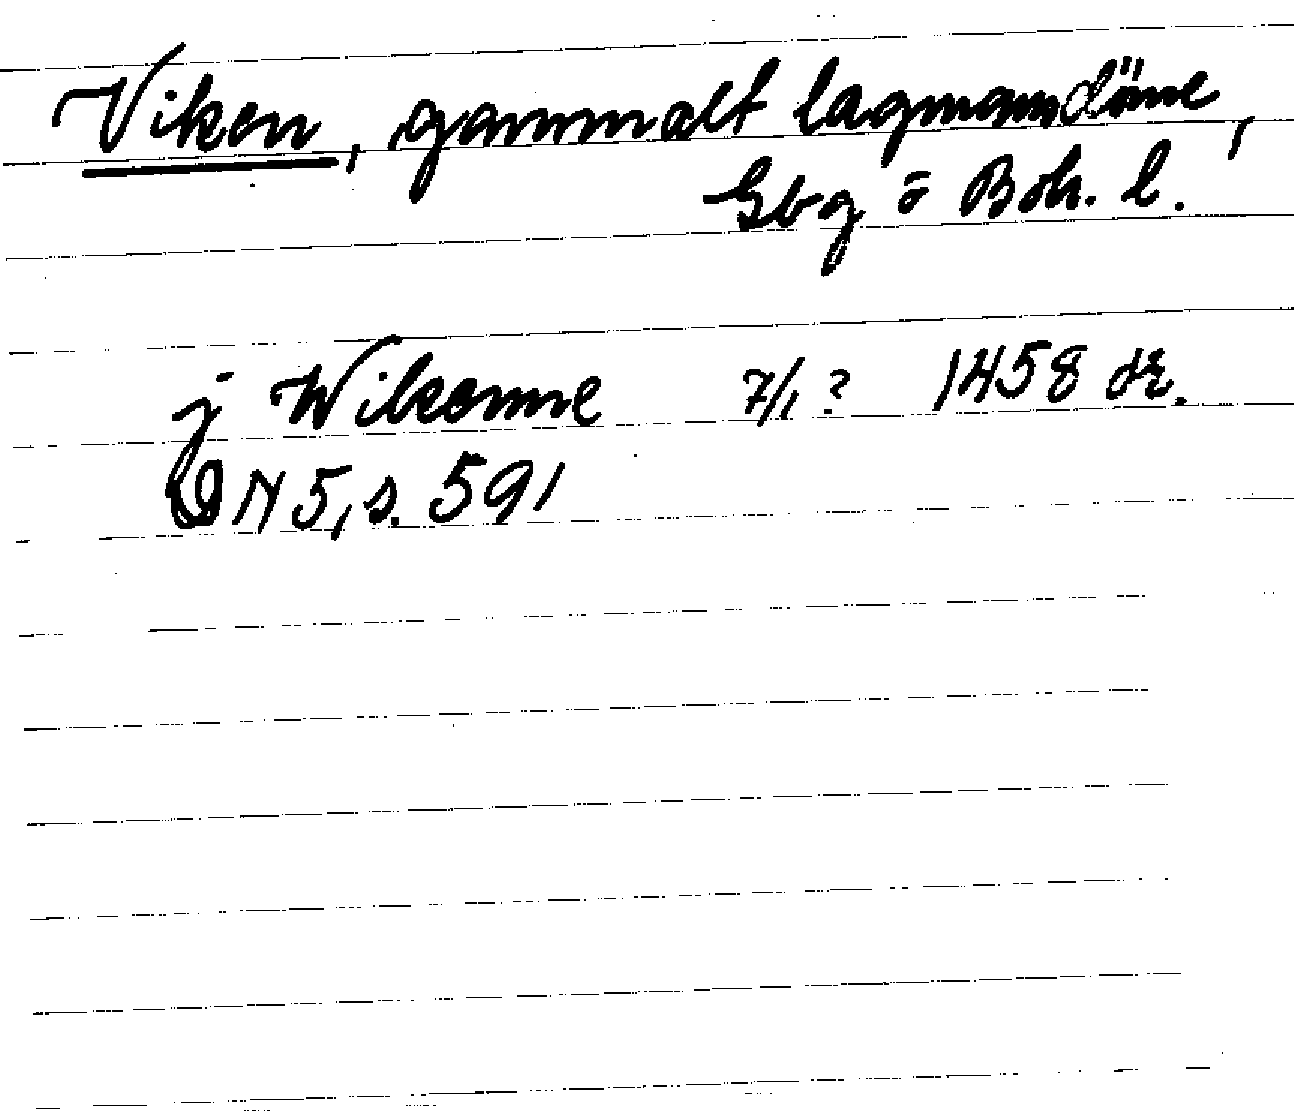 Viken, gammalt lagmansdöme,
Gbg o Boh. l.
j Wikenne 7/1? 1458 dr.
DN 5, s. 591